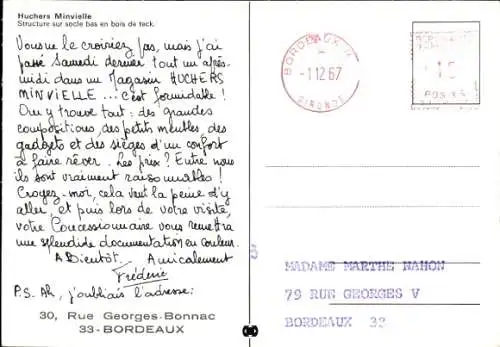 Huchers Minvielle
Structure sur socle bas en bois de teck.
Vous ne le croiriez pas, mais j'ai
passé Samedi dernier tout un après-
midi dans un Magasin HUCHERS
MINVIELLE... c'est formidable!
On y trouve tout : des grandes
compositions, des petits meubles, des
gadgets et des sièges d'un confort
à faire rêver. Les prix? Entre nous
ils sont vraiment raisonnables!
Croyez-moi, cela vaut la peine d'y
aller, et puis lors de votre visite,
votre Concessionnaire vous remettra
une splendide documentation en couleurs.
A Bientôt. Amicalement
Frédéric
P.S. Ah, j'oubliais l'adresse:
30, Rue Georges-Bonnac
33-BORDEAUX
BORDEAUX
-1 12 67
GIRONDE
15
POSTES
MADAME MARTHE NAHON
79 RUE GEORGES V
BORDEAUX 33